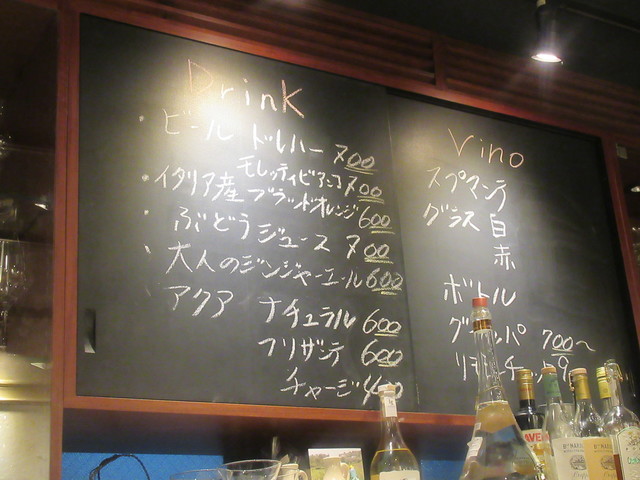 Drink
・ビール ドレハー 700
モレッティビアンコ 700
・イタリア産ブラッドオレンジ 600
・ぶどうジュース 700
・大人のジンジャーエール 600
アクア ナチュラル 600
フリザンテ 600
チャージ 400
Vino
スプマンテ
グラス 白
赤
ボトル
グラッパ 700〜